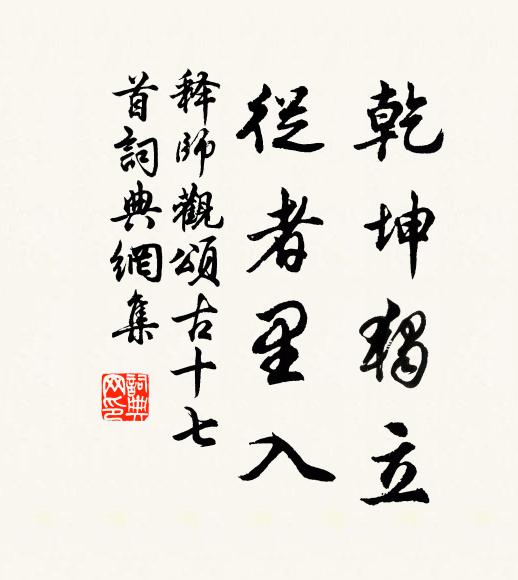 乾坤独立
從者里入
释師觀頌古十七
首詞典網集
詞典
网印